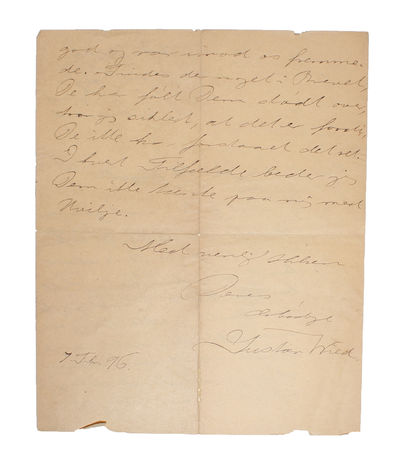 god og var imod os fremme-
de. Findes der noget i Brevet,
De har følt Dem stødt over,
tror jeg sikkert, at det er fordi
De ikke har forstaaet det ret.
I hvert Tilfælde beder jeg
Dem ikke tænke paa mig med
Uvilje.
Med venlig Hilsen
Deres
ærbødige
Gustav Wied.
7 96.